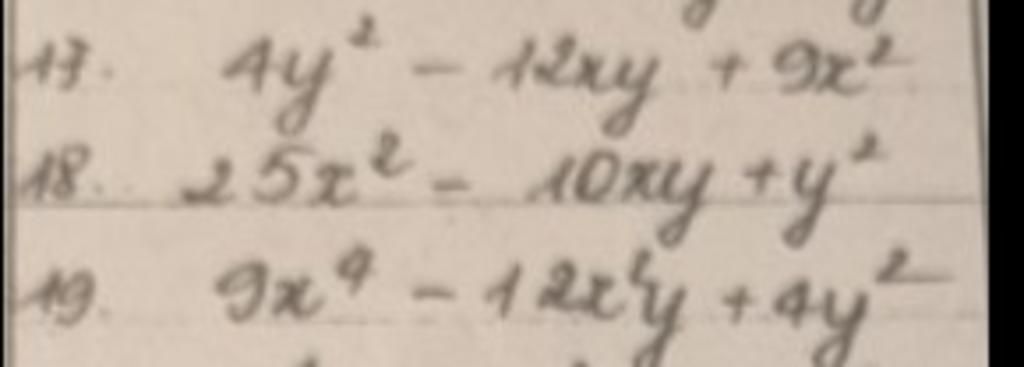 17. 4y² - 12xy + 9x²
18. 25x² - 10xy + y²
19. 9x⁴ - 12x²y + 4y²